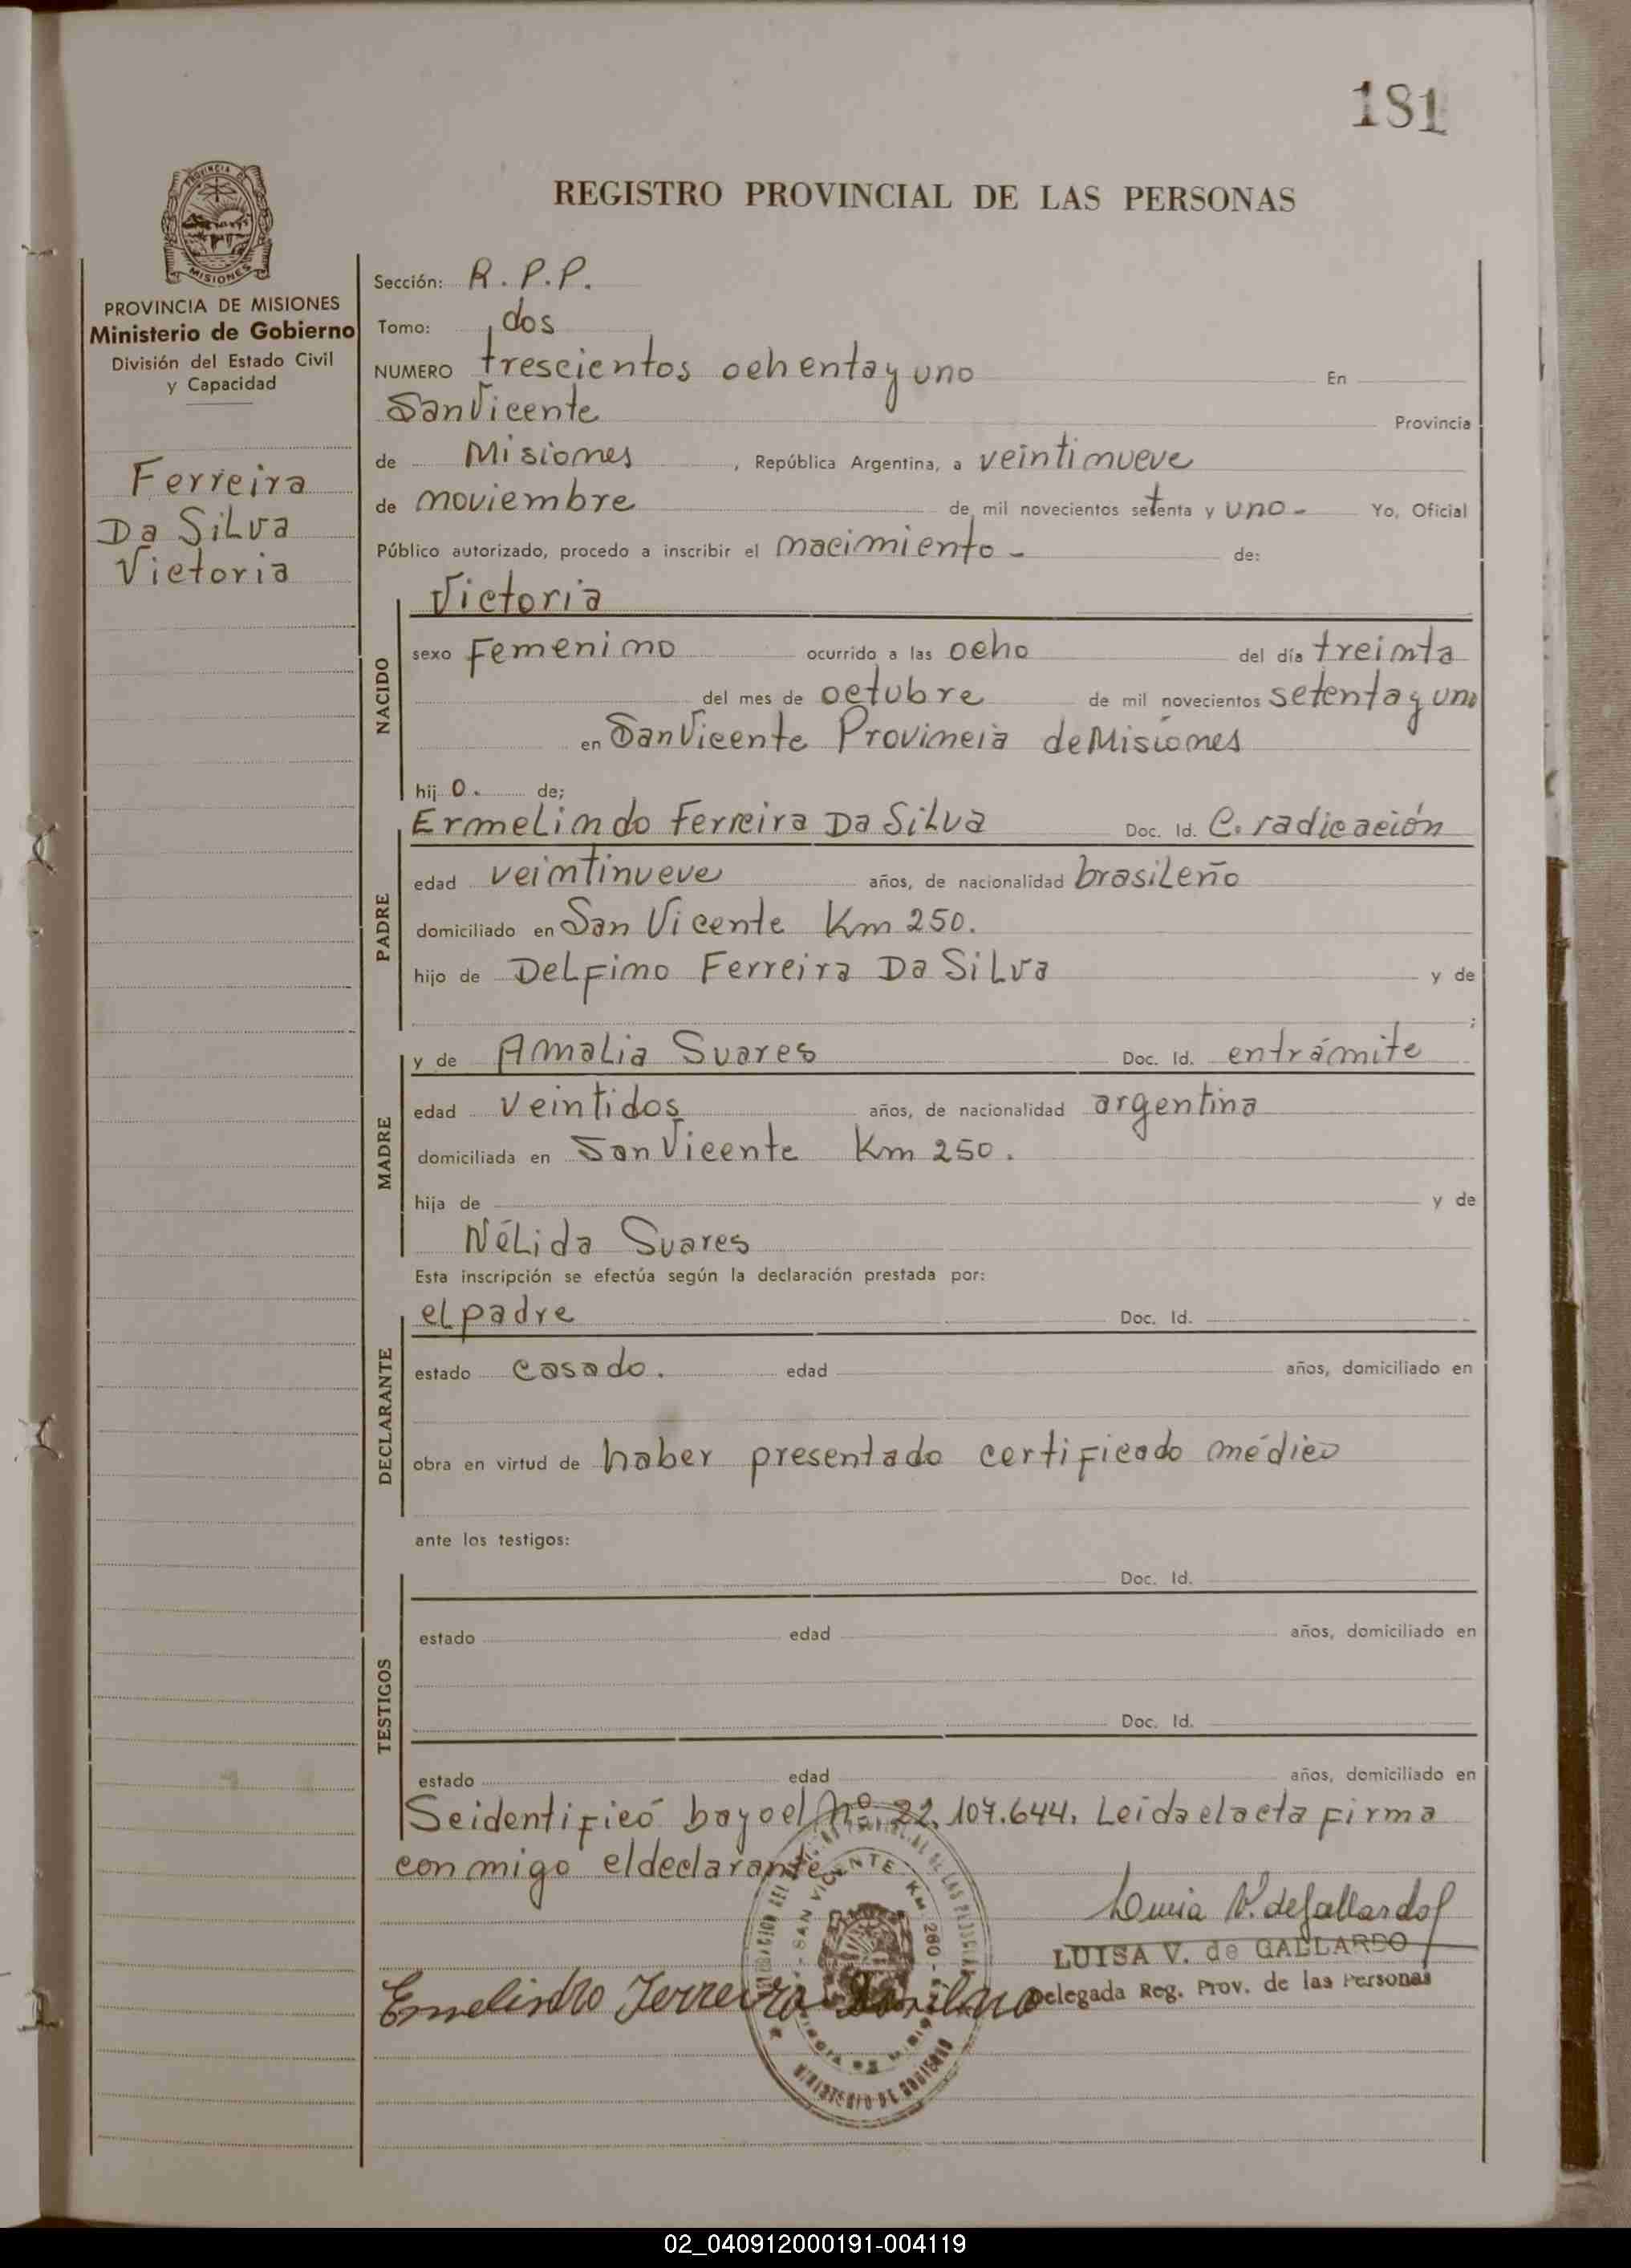 181
PROVINCIA DE
MISIONES
PROVINCIA DE MISIONES
Ministerio de Gobierno
División del Estado Civil
y Capacidad
Ferreira
Da Silva
Victoria
REGISTRO PROVINCIAL DE LAS PERSONAS
Sección: R.P.P.
Tomo: dos
NUMERO trescientos ochenta y uno En
San Vicente Provincia
de Misiones, República Argentina, a veintinueve
de noviembre de mil novecientos setenta y uno - Yo, Oficial
Público autorizado, procedo a inscribir el nacimiento - de:
NACIDO
Victoria
sexo Femenino ocurrido a las ocho del día treinta
del mes de octubre de mil novecientos setenta y uno
en San Vicente Provincia de Misiones
hij o. de;
PADRE
Ermelindo Ferreira Da Silva Doc. Id. C. radicación
edad veintinueve años, de nacionalidad brasileño
domiciliado en San Vicente Km 250.
hijo de Delfino Ferreira Da Silva y de
;
MADRE
y de Amalia Suares Doc. Id. en trámite
edad veintidos años, de nacionalidad argentina
domiciliada en San Vicente Km 250.
hija de y de
Nélida Suares
Esta inscripción se efectúa según la declaración prestada por:
DECLARANTE
el padre Doc. Id.
estado casado. edad años, domiciliado en
obra en virtud de haber presentado certificado médico
ante los testigos:
TESTIGOS
Doc. Id.
estado edad años, domiciliado en
Doc. Id.
estado edad años, domiciliado en
Se identificó bayo el nº 22.107.644. Leida el acta firma
conmigo el declarante
SAN VICENTE KM 280
MINISTERIO DE GOBIERNO
Luisa V. de Gallardo
LUISA V. de GALLARDO
Delegada Reg. Prov. de las Personas
Ermelindo Ferreira Da silva
02_040912000191-004119